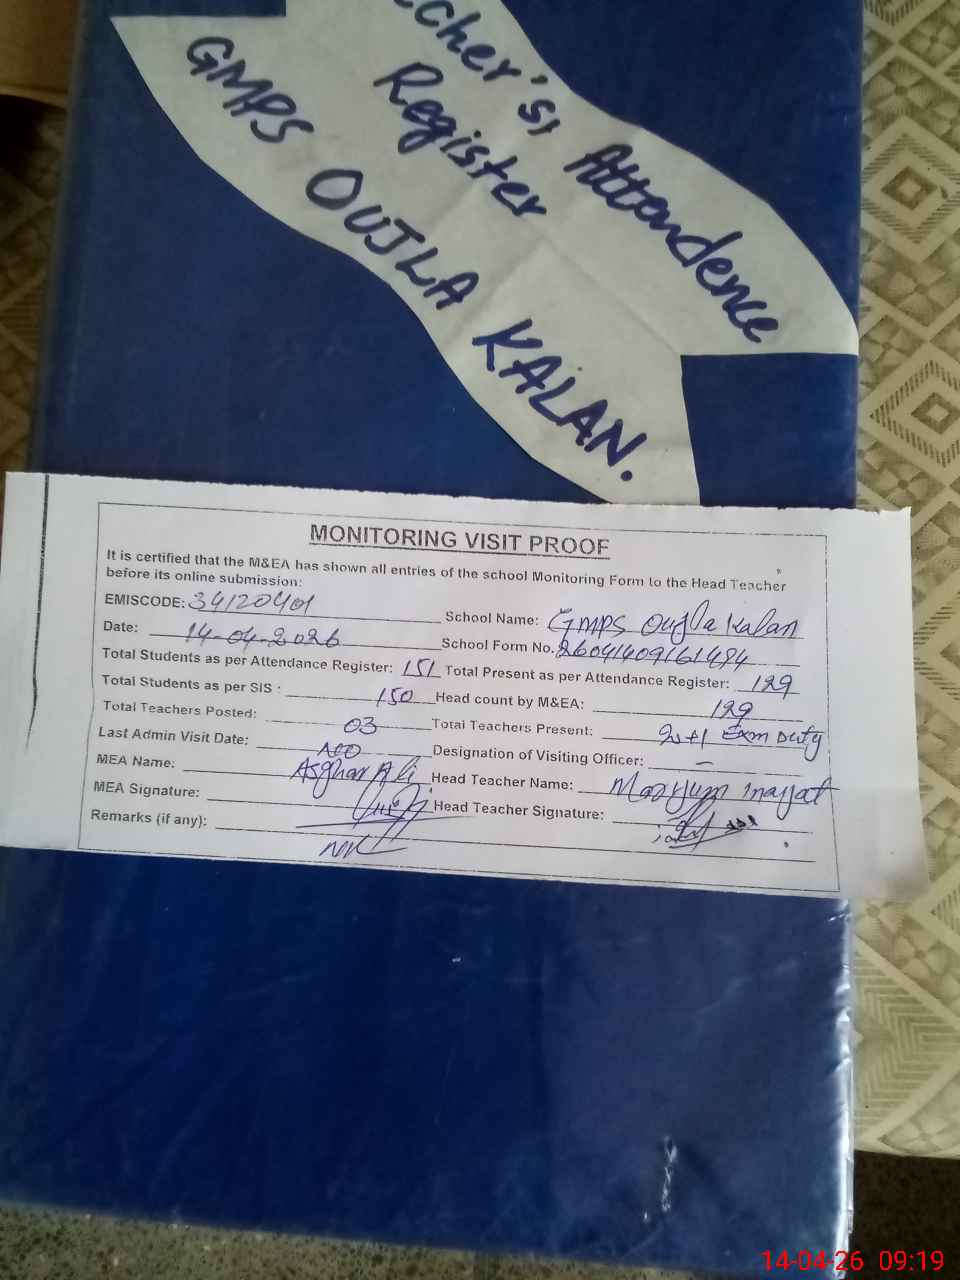 Teacher's, Attendence
Register
GMPS OUJLA KALAN.
MONITORING VISIT PROOF
It is certified that the M&EA has shown all entries of the school Monitoring Form to the Head Teacher
before its online submission:
EMISCODE: 34120401 School Name: GMPS Oujla Kalan
Date: 14-04-2026 School Form No. 26041409161494
Total Students as per Attendance Register: 151 Total Present as per Attendance Register: 129
Total Students as per SIS : 150 Head count by M&EA: 129
Total Teachers Posted: 03 Total Teachers Present: 2+1 Exm Duty
Last Admin Visit Date: NO Designation of Visiting Officer: –
MEA Name: Asghar Ali Head Teacher Name: Maryum Inayat
MEA Signature: Head Teacher Signature:
Remarks (if any):
14-04-26 09:19